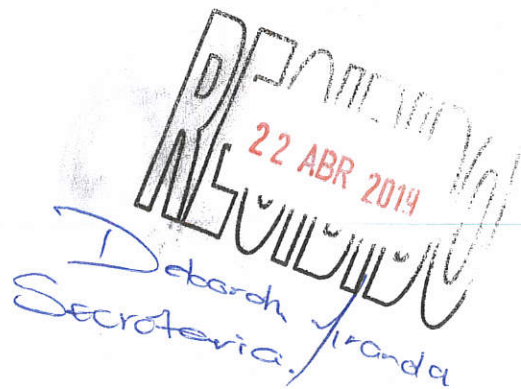 RECIBIDO
22 ABR 2014
Deborah Miranda
Secretaria.